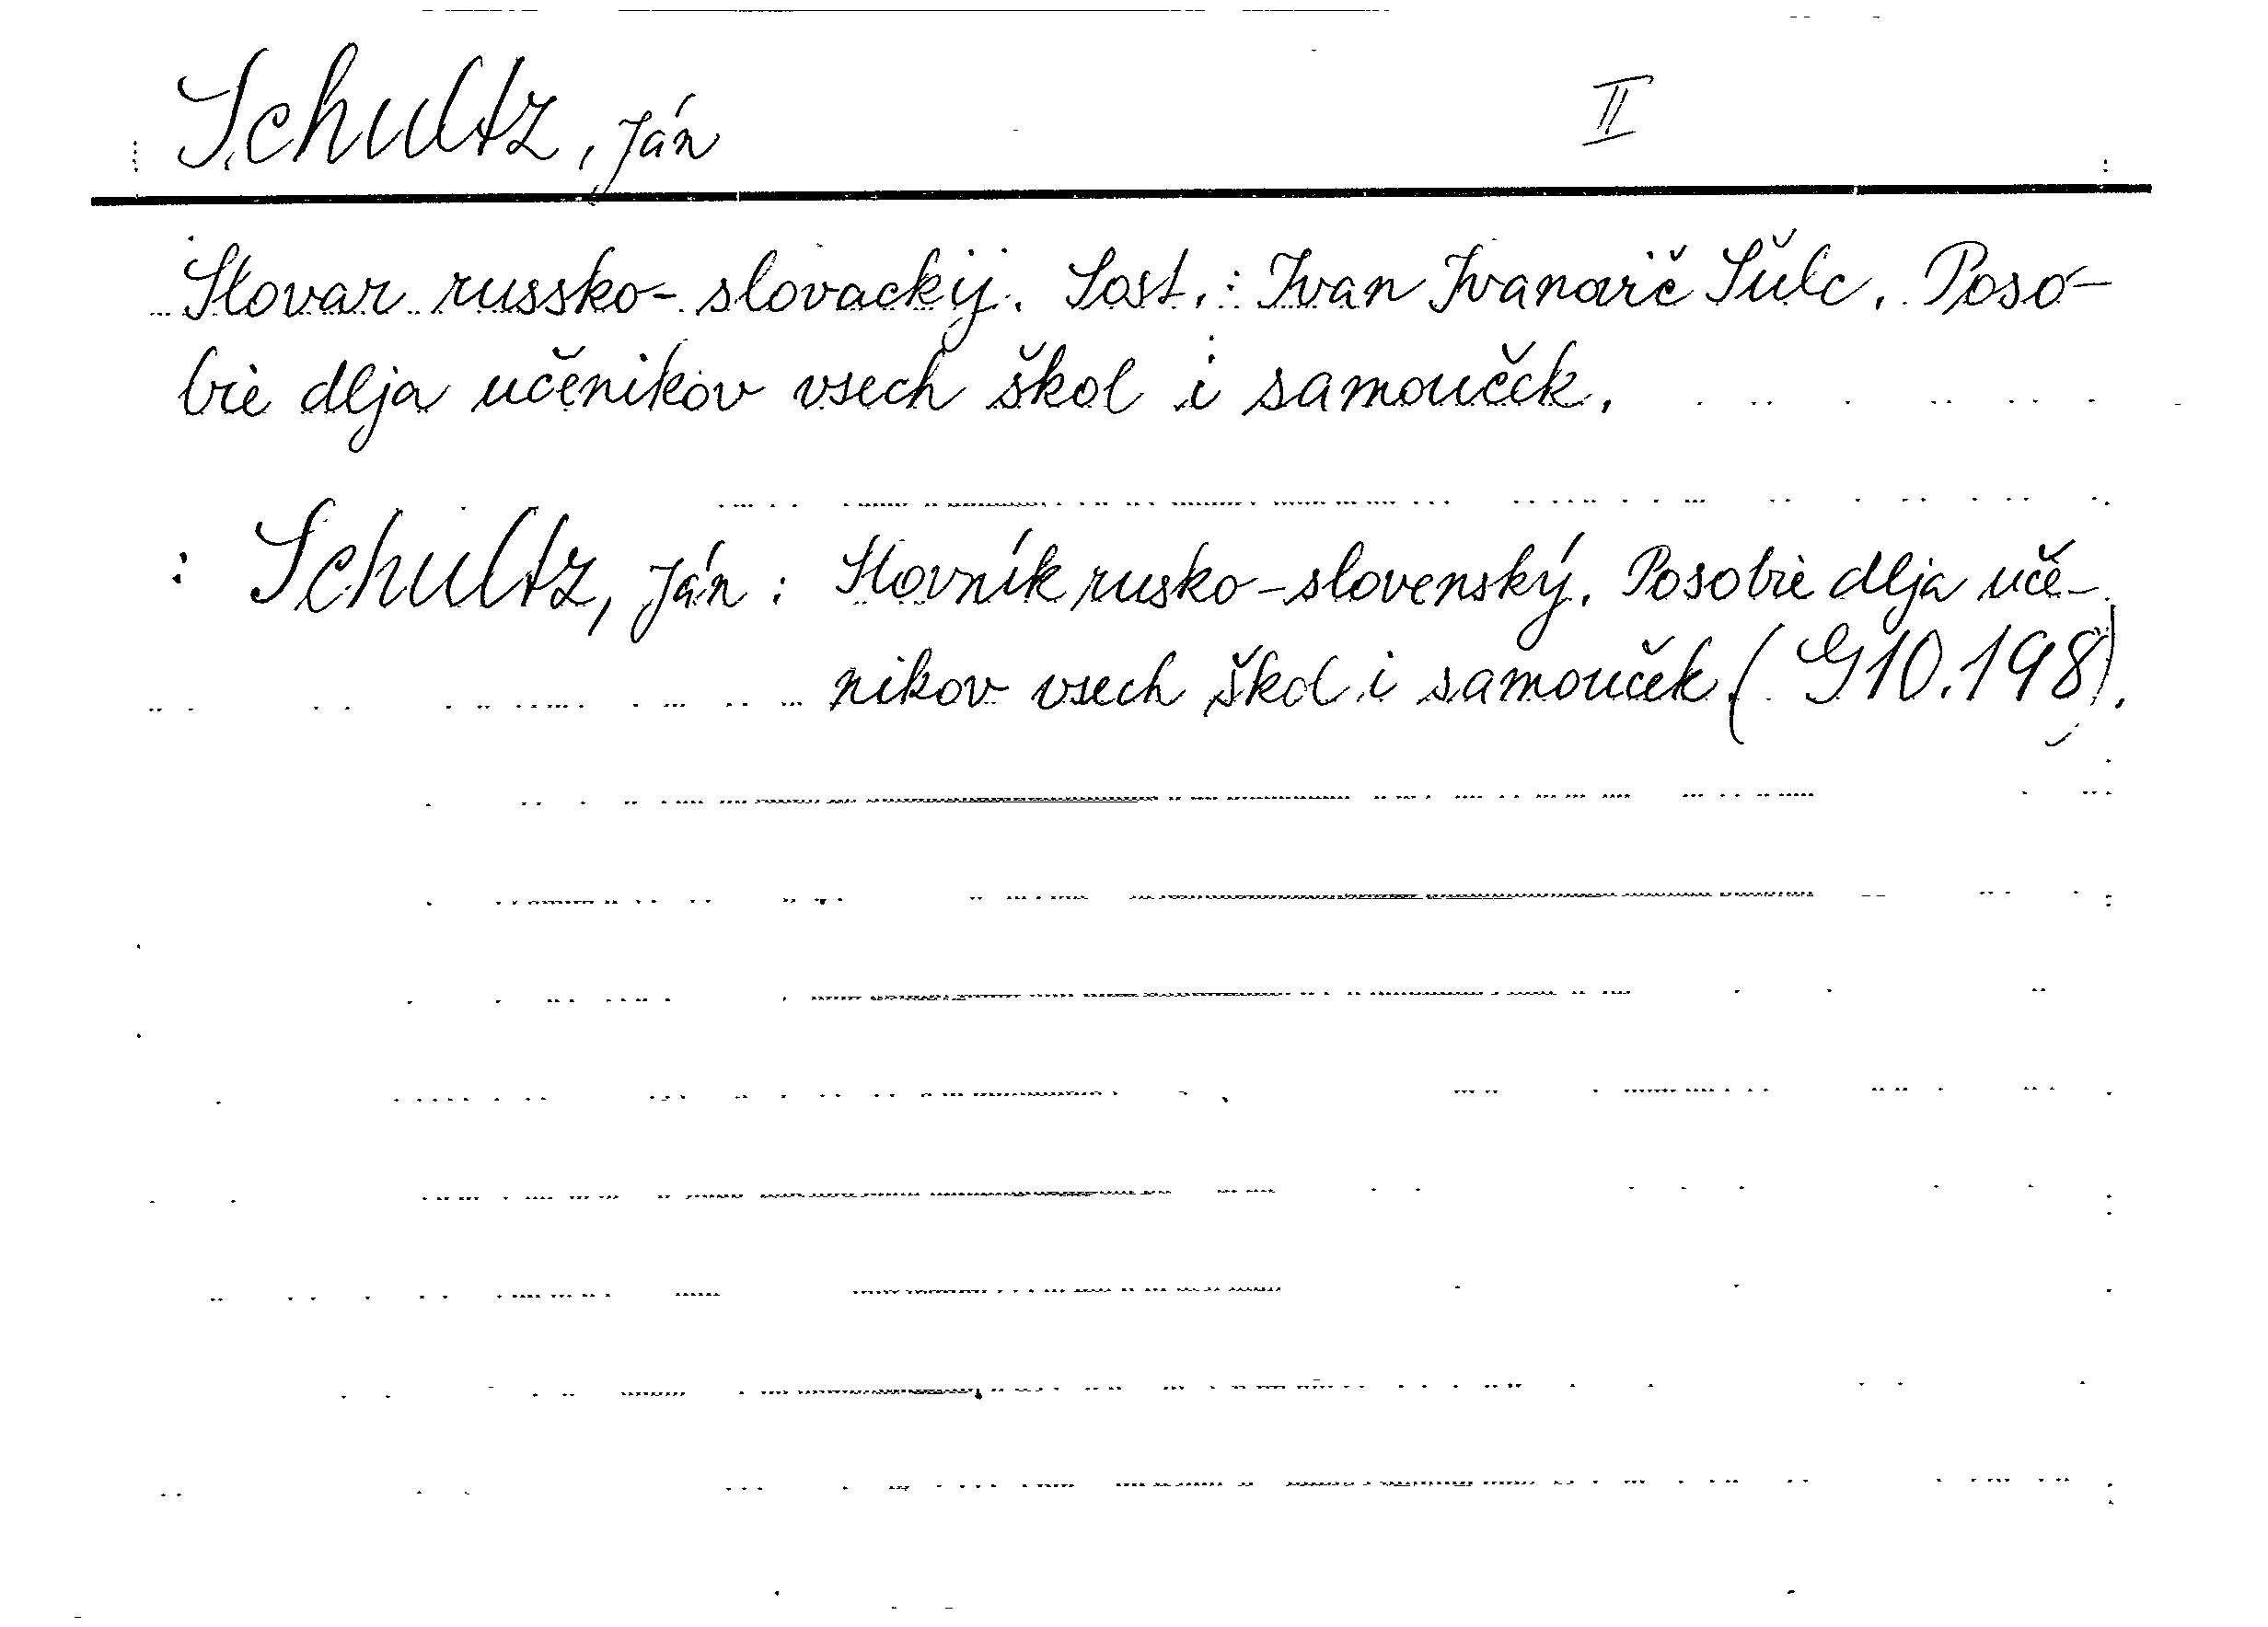 Schultz, Ján II
Slovar russko-slovackij. Sost.: Ivan Ivanovič Šulc. Poso-
bie dlja učenikov vsech škol i samouček.
Schultz, Ján: Slovník rusko-slovenský. Posobie dlja uče-
nikov vsech škol i samouček (G10.198).